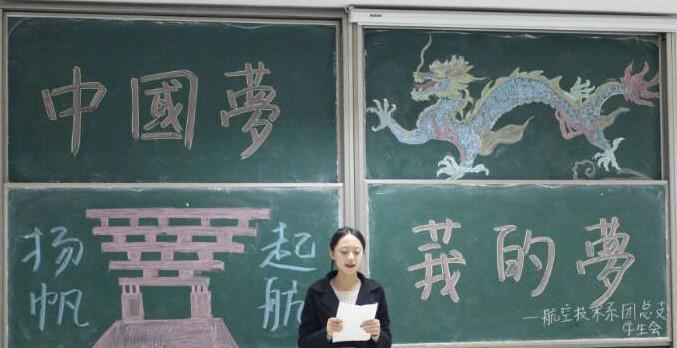 中國夢
扬帆
起航
莪的夢
—航空技术系团总支
学生会